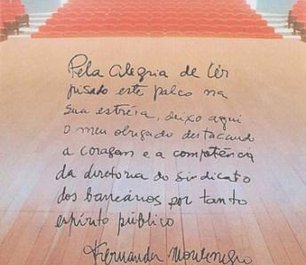 Pela alegria de ter
pisado este palco na
sua estréia, deixo aqui
o meu obrigado destacando
a coragem e a competência
da diretoria do sindicato
dos bancários por tanto
espírito público
Fernanda Montenegro